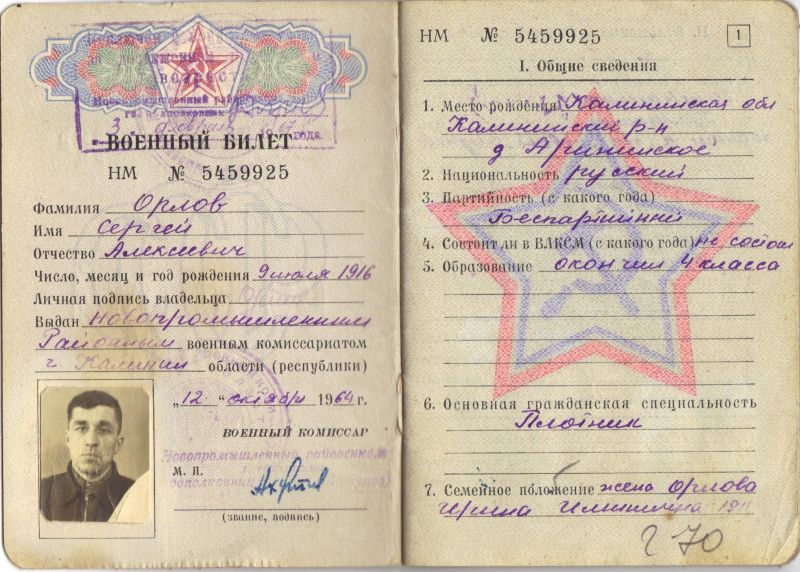 возраст
3 февраля 1967 года
ВОЕННЫЙ БИЛЕТ
НМ № 5459925
Фамилия Орлов
Имя Сергей
Отчество Алексеевич
Число, месяц и год рождения 9 июля 1916
Личная подпись владельца
Выдан Новопромышленным
Районным военным комиссариатом
г Калинин области (республики)
„12“ октября 1964 г.
ВОЕННЫЙ КОМИССАР
Новопромышленный райвоенком
М. П.
(звание, подпись)
НМ № 5459925
1
I. Общие сведения
1. Место рождения Калининская обл
Калининский р-н
д Аринипское
2. Национальность русский
3. Партийность (с какого года)
Беспартийный
4. Состоит ли в ВЛКСМ (с какого года) не состоял
5. Образование окончил 4 класса
6. Основная гражданская специальность
Плотник
7. Семейное положение жена Орлова
Ирина 191
г 70